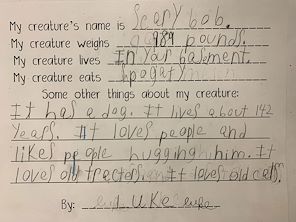 My creature's name is Scary bob.
My creature weighs 989 pounds.
My creature lives In Yor basment.
My creature eats Spogaty
Some other things about my creature:
It has a dog. It lives about 142
Years. It loves people and
likes people hugging him. It
loves old trectors. It loves old cars.
By: